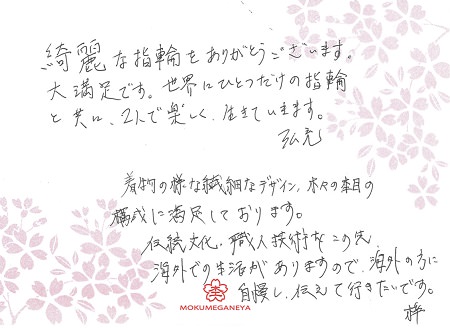 綺麗な指輪をありがとうございます。
大満足です。世界にひとつだけの指輪
と共に、2人で楽しく、生きていきます。
弘充
着物の様な繊細なデザイン、木々の木目の
構成に満足しております。
伝統文化・職人技術を この先
海外での生活がありますので、海外の方に
自慢し、伝えて行きたいです。
梓
MOKUMEGANEYA